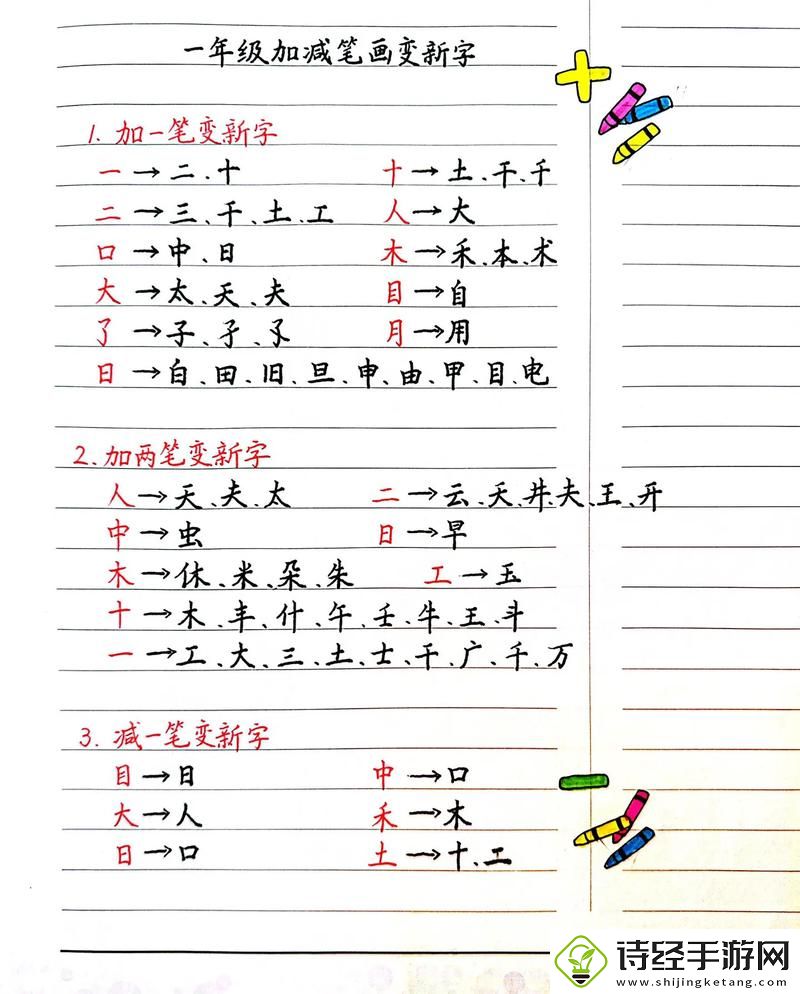 一年级加减笔画变新字
1. 加一笔变新字
一→二、十 十→土、干、千
二→三、干、土、工 人→大
口→中、日 木→禾、本、术
大→太、天、夫 目→自
了→子、孑、孓 月→用
日→白、田、旧、旦、申、由、甲、目、电
2. 加两笔变新字
人→天、夫、太 二→云、天、井、夫、王、开
中→虫 日→早
木→休、米、朵、朱 工→玉
十→木、丰、什、午、壬、牛、王、斗
一→工、大、三、土、士、干、广、千、万
3. 减一笔变新字
目→日 中→口
大→人 禾→木
日→口 土→十、工
诗经手游网
www.shijingketang.com